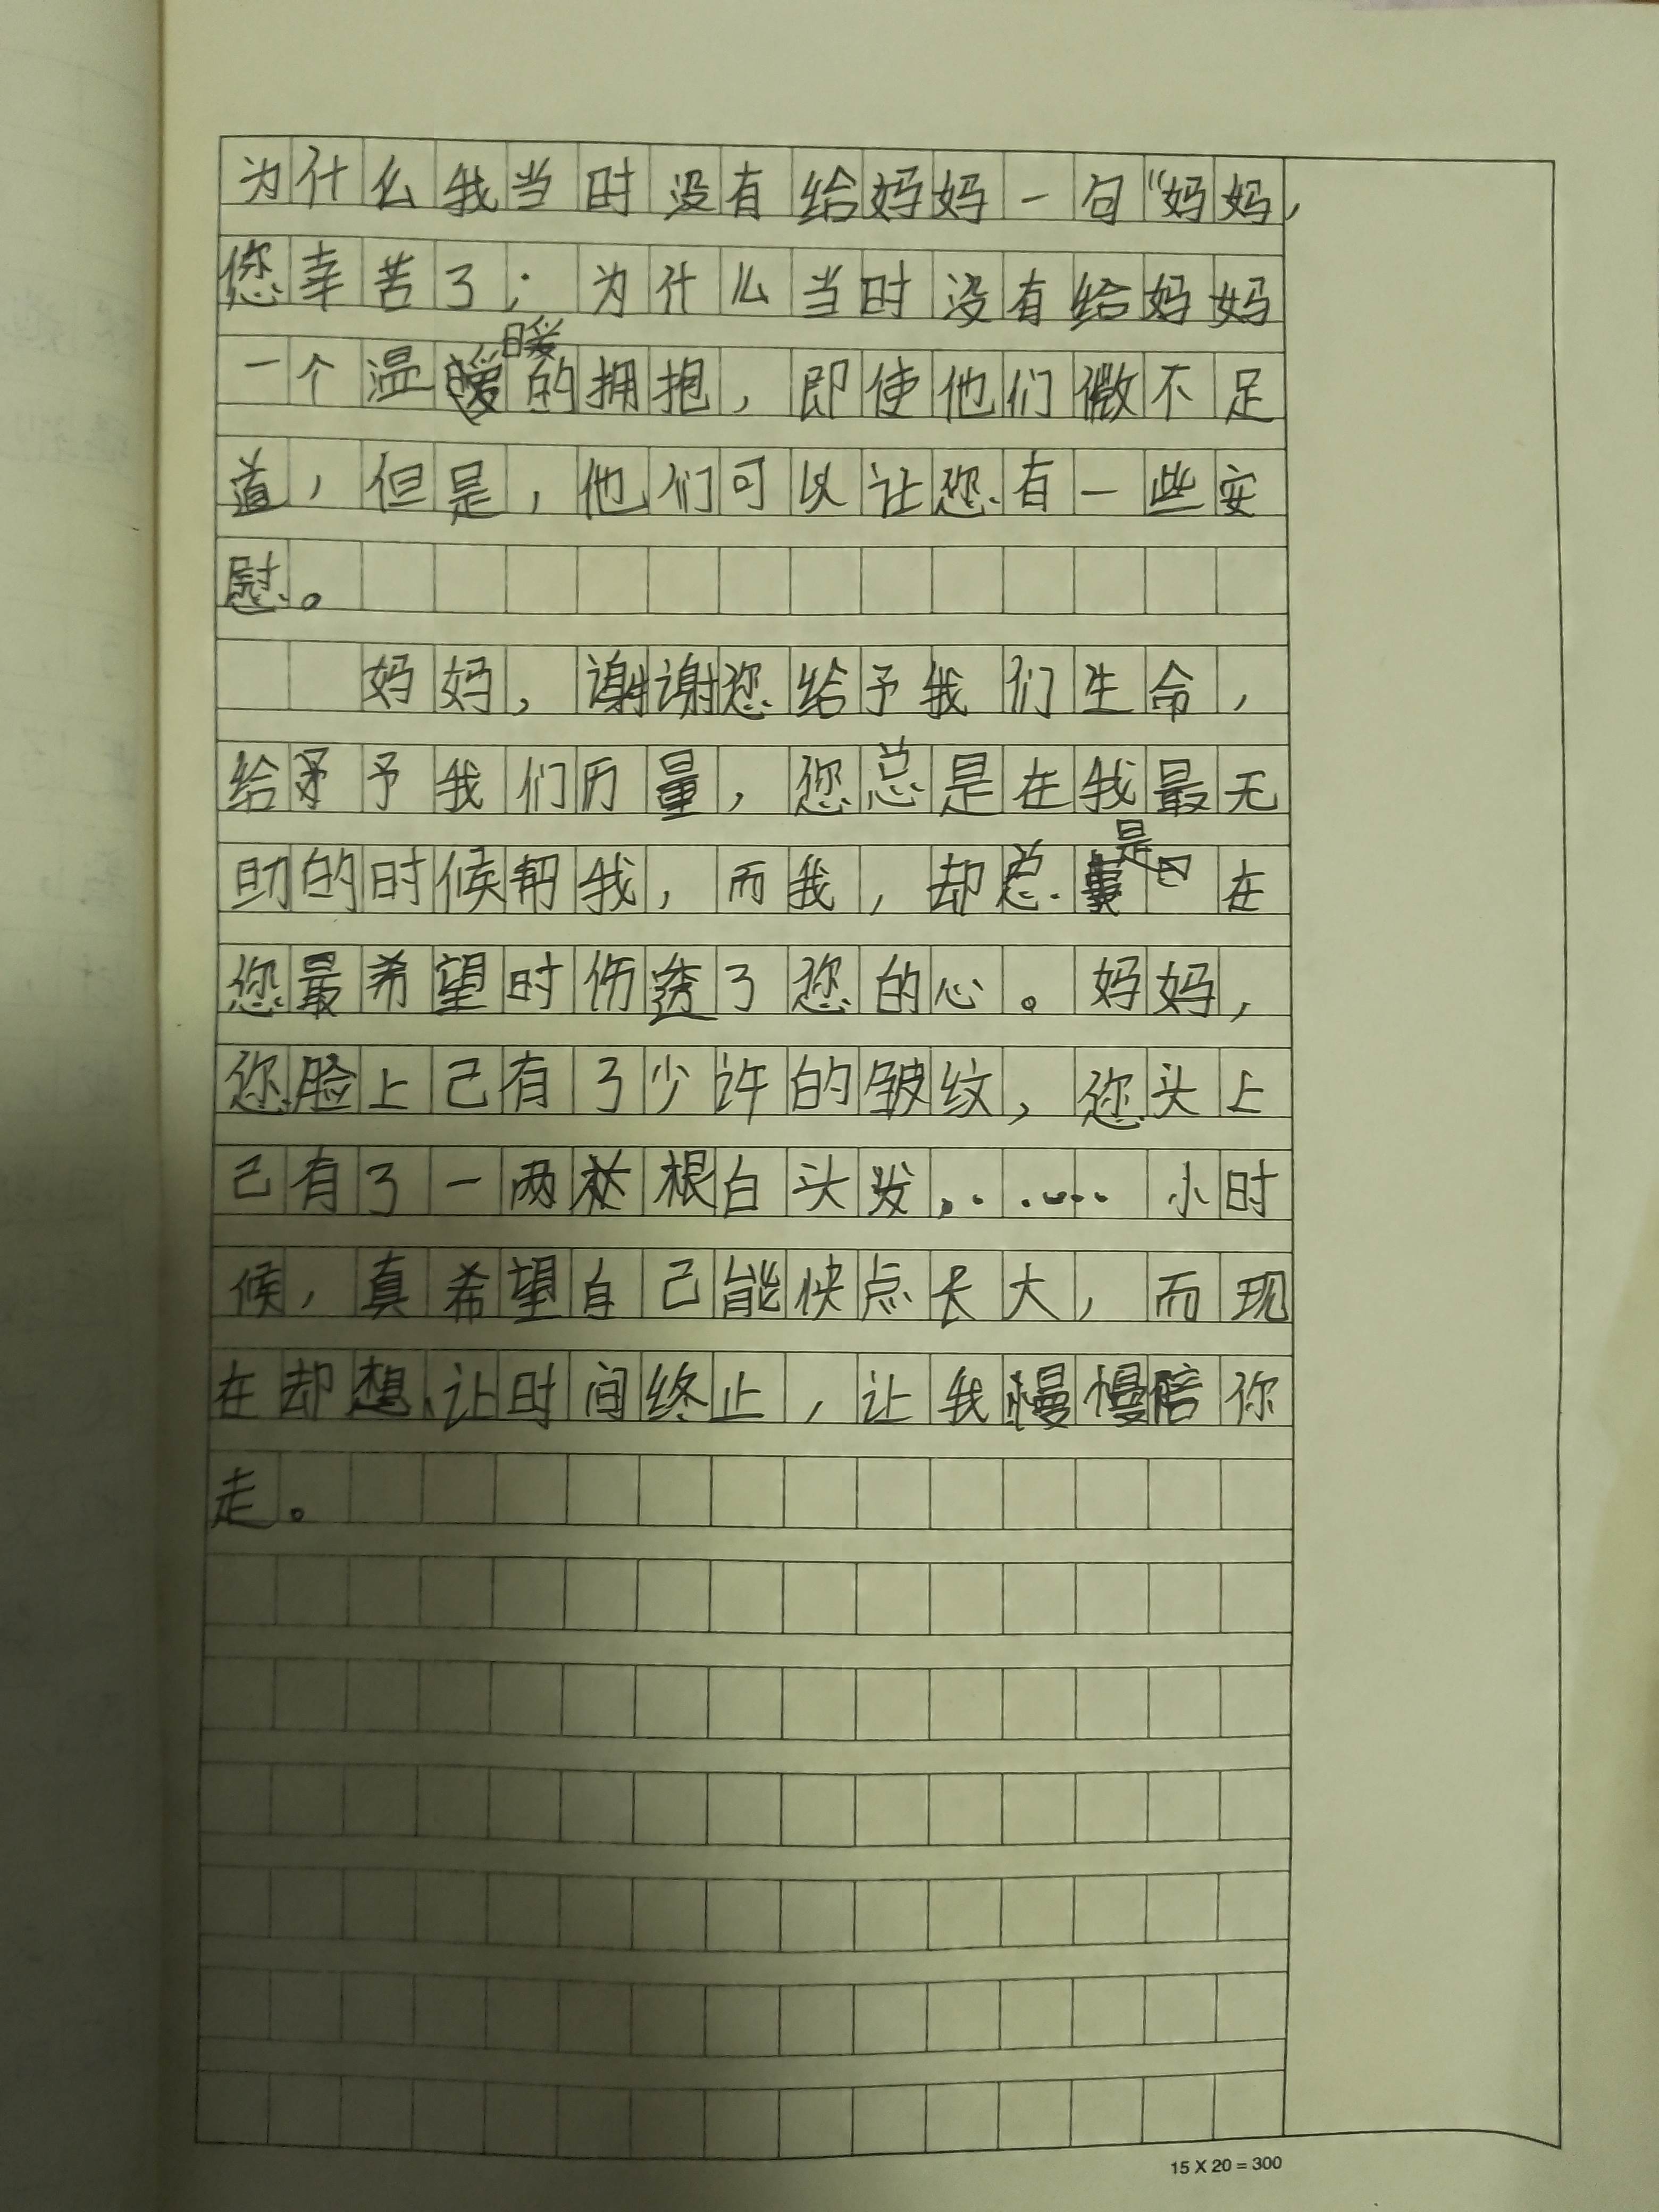 为什么我当时没有给妈妈一句“妈妈,
您幸苦了;为什么当时没有给妈妈
一个温暖的拥抱,即使他们微不足
道,但是,他们可以让您有一些安
慰。
妈妈,谢谢您给予我们生命,
给予我们历量,您总是在我最无
助的时候帮我,而我,却总是在
您最希望时伤透了您的心。妈妈,
您脸上己有了少许的皱纹,您头上
己有了一两根白头发,……小时
候,真希望自己能快点长大,而现
在却想让时间终止,让我慢慢陪你
走。
15 X 20 = 300